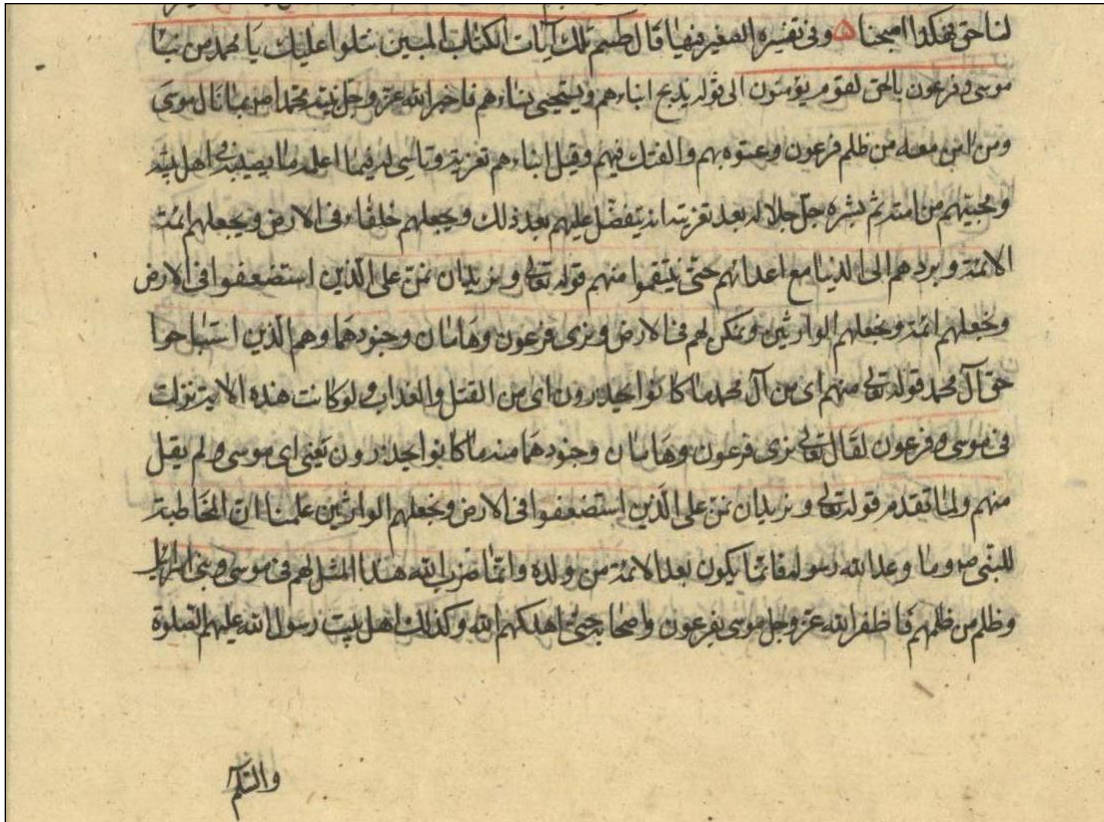 لنا حتى هكذا اصبحنا ۵ وفى تفسيره الصغير فيها قال طسم تلك آيات الكتاب المبين نتلوا عليك يا محمد من نبأ
موسى و فرعون بالحق لقوم يؤمنون الى قوله يذبح ابناءهم ويستحيى نساءهم فاخبر الله عز وجل نبيه محمدا ص بما نال موسى
ومن امن معه من ظلم فرعون وعتوه بهم والفتك فيهم وقتل ابناءهم تعزية وتاسى له فيما اعلمه ما يصيب فى اهل بيته
ومحبتهم من امته ثم بشره جل جلاله بعد تعزيته انه يتفضل عليهم بعد ذلك ويجعلهم خلفاء فى الارض ويجعلهم ائمة
الامة ويردهم الى الدنيا مع اعدائهم حتى ينتقموا منهم قوله تعالى ونريد ان نمن على الذين استضعفوا فى الارض
ونجعلهم ائمة ونجعلهم الوارثين ونمكن لهم فى الارض ونرى فرعون وهامان وجنودهما وهم الذين استباحوا
حق آل محمد قوله تعالى منهم اى من آل محمد ما كانوا يحذرون اى من القتل والعذاب ولو كانت هذه الاية نزلت
فى موسى و فرعون لقال تعالى نرى فرعون وهامان وجنودهما منه ما كانوا يحذرون يعنى اى موسى ولم يقل
منهم ولما تقدم قوله تعالى ونريد ان نمن على الذين استضعفوا فى الارض ونجعلهم الوارثين علمنا ان المخاطبة
للنبى ص وما وعد الله رسوله فانما يكون بعد الائمة من ولده وانما ضرب الله هذا المثل لهم فى موسى وبنى اسرائيل
وظلم من ظلمهم فاظفر الله عز وجل موسى بفرعون واصحابه حتى اهلكهم الله وكذلك اهل بيت رسول الله عليهم الصلوة
والسلم